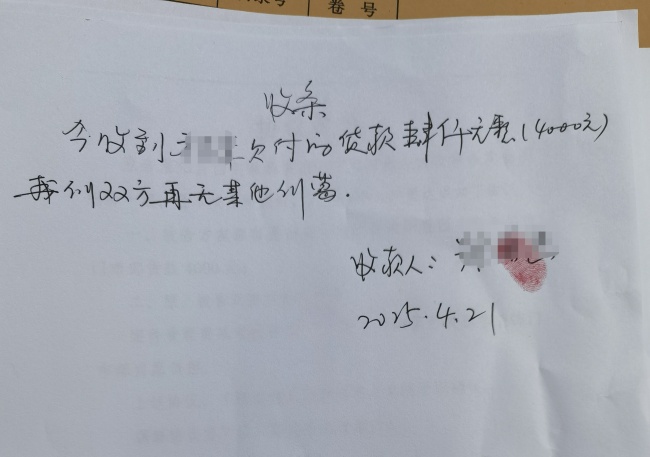 卷号
收条
今收到 欠付的货款肆仟元整(4000元)
我们双方再无其他纠葛.
收款人:
2025.4.21